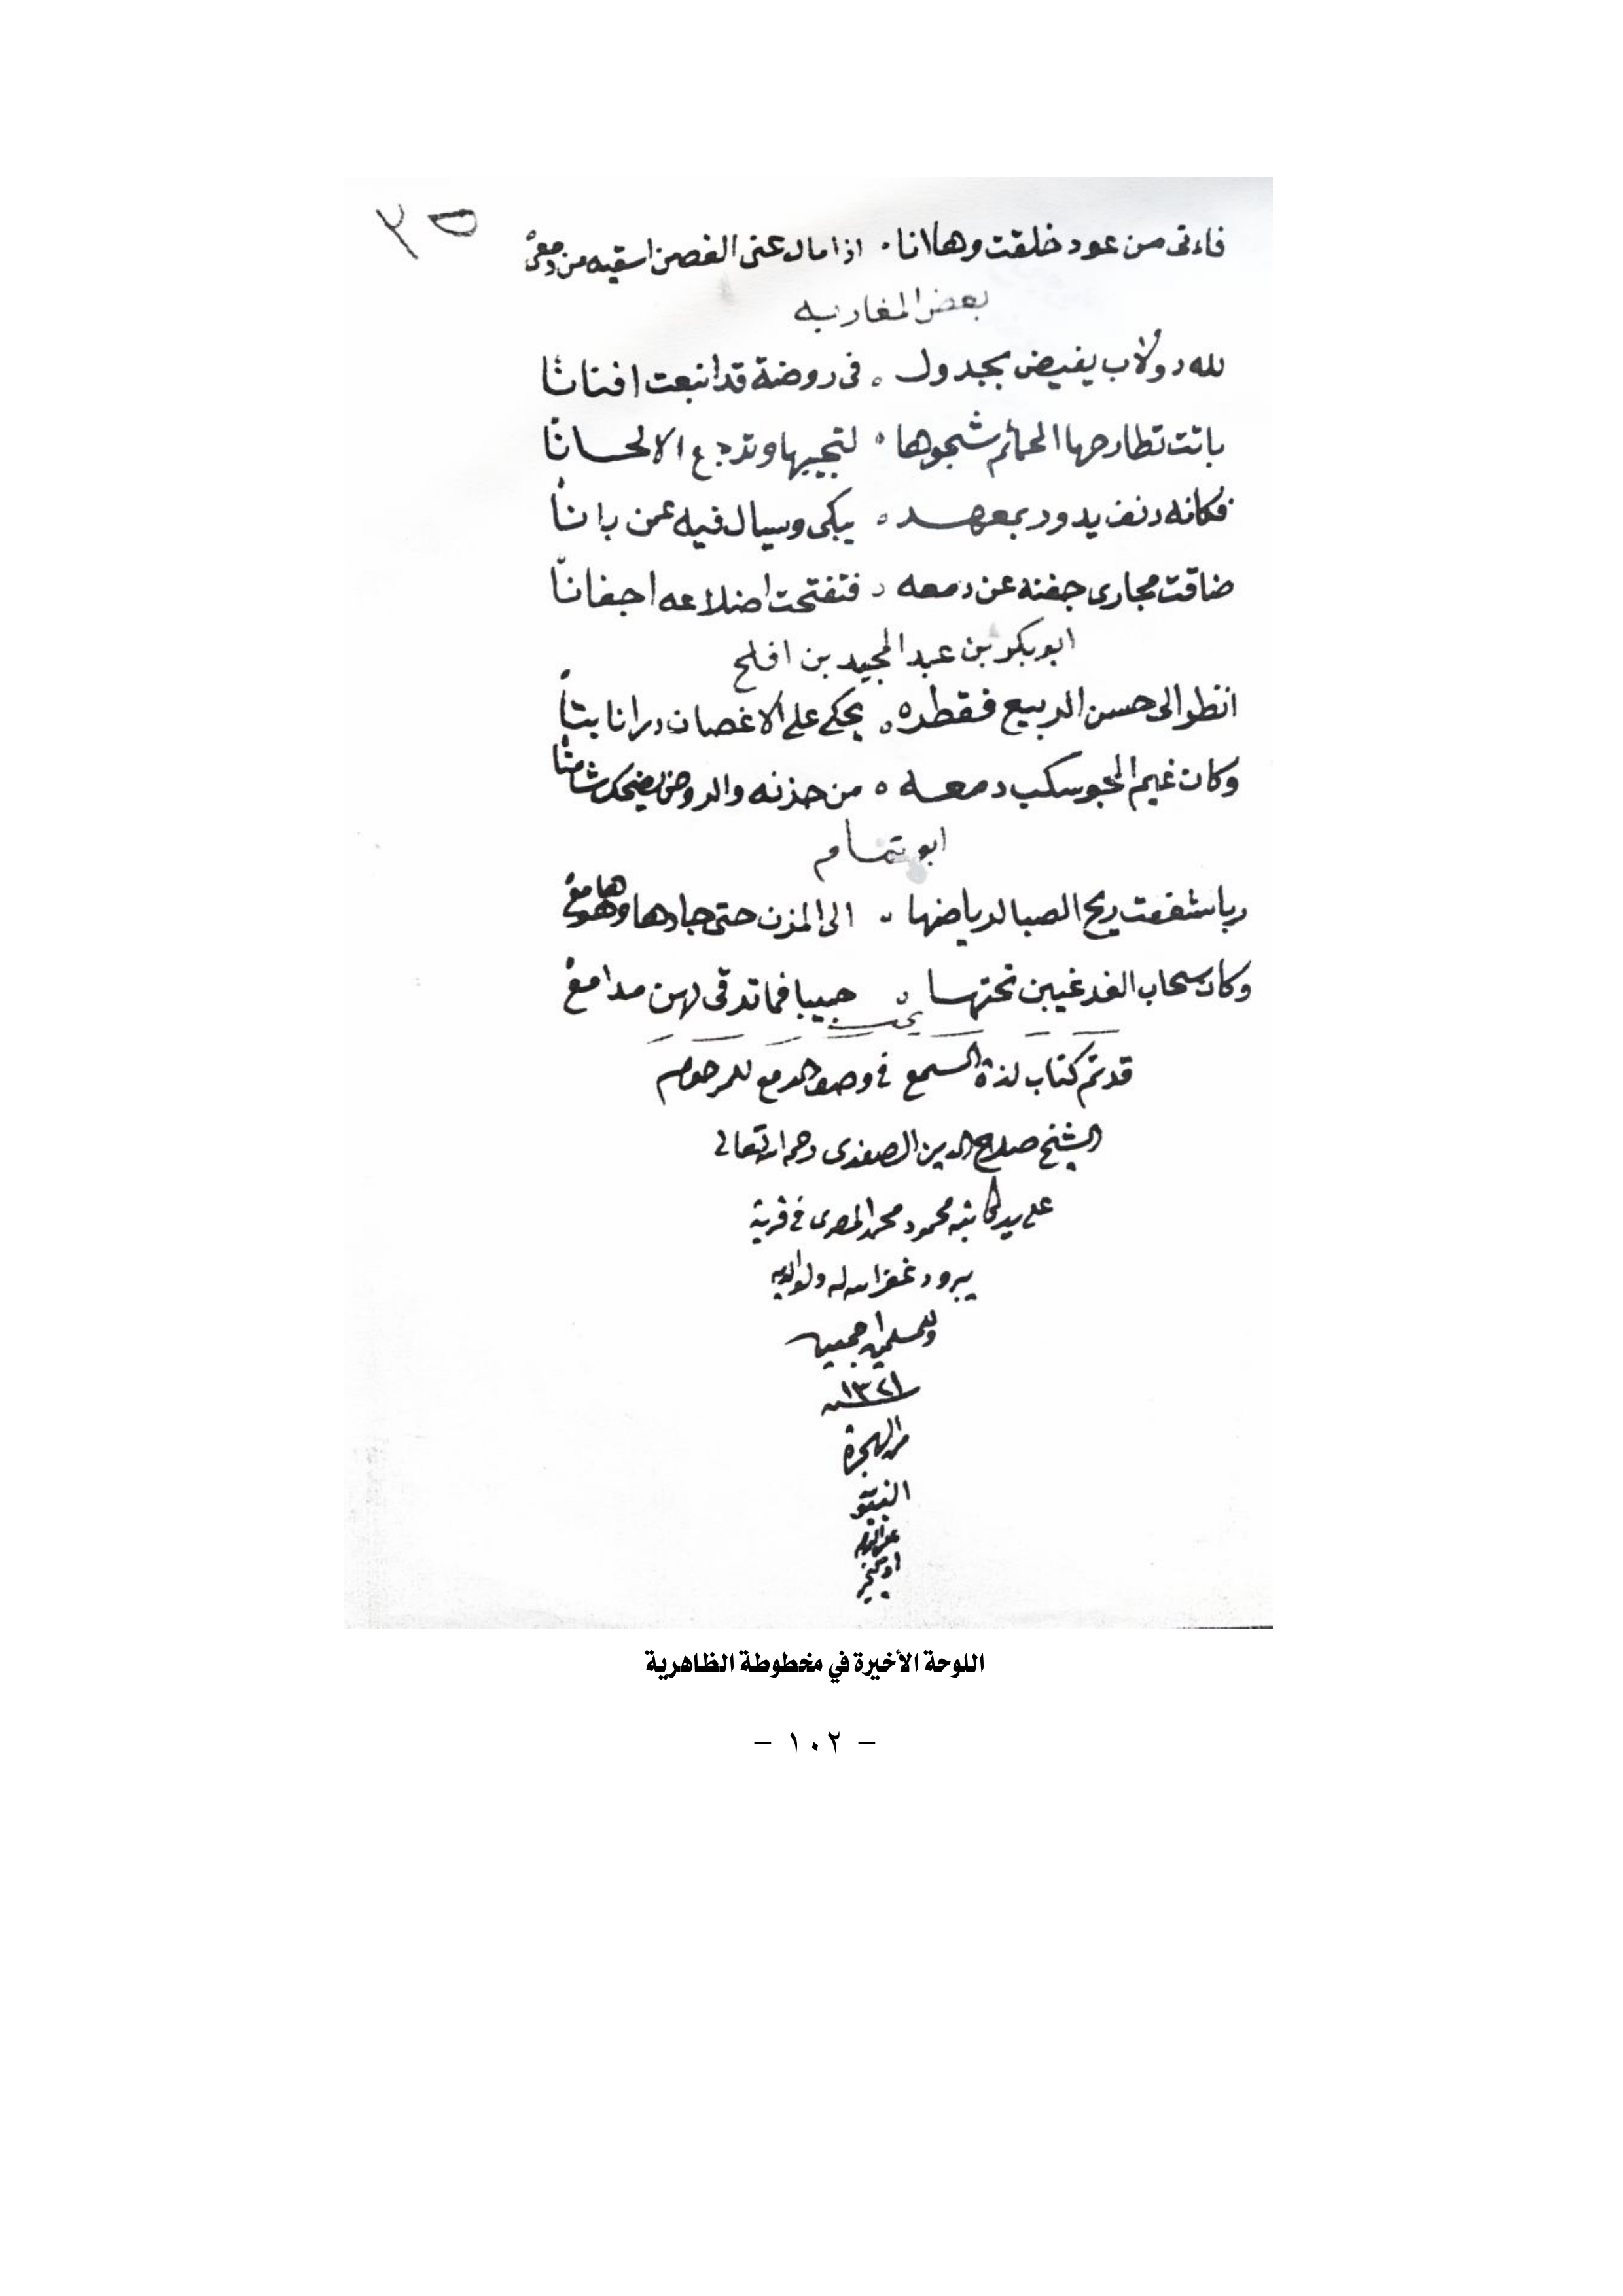 ٢٥
فاءنى من عود خلقت وها انا ۰ اذا مال عنى الغصن اسقيه من دمعى
بعض المغاربه
لله دولاب يفيض بجدول ۰ فى روضة قد انبعت افنانا
باتت تطارحها الحمائم شجوها ۰ لتجيبها وترجع الالحانا
فكانه دنف يدور بمعهد ۰ يبكى ويسال فيه عمن بانا
ضاقت مجارى جفنه عن دمعه ۰ فتفتحت اضلاعه اجفانا
ابوبكر بن عبد المجيد بن افلح
انظر الى حسن الربيع فقطره ۰ يحكى على الاغصان درا نابتا
وكان غيم الجو سكب دمعه ۰ من حزنه والروض يضحك شامتا
ابو تمام
ربا شفعت ريح الصبا لرياضها ۰ الى المزن حتى جادها وهو هامع
وكان سحاب الغد غيبن تحتها ۰ حبيبا فما ترقى لهن مدامع
قد تم كتاب لذة السمع فى وصف الدمع للمرحوم
الشيخ صلاح الدين الصفدى رحمه الله تعالى
على يد كاتبه محمود محمد المصرى فى قرية
يبرود غفر الله له ولوالديه
وللمسلمين اجمعين
سنة ١٣٢١
من الهجرة
النبوية
اللوحة الأخيرة في مخطوطة الظاهرية
– ١٠٢ –